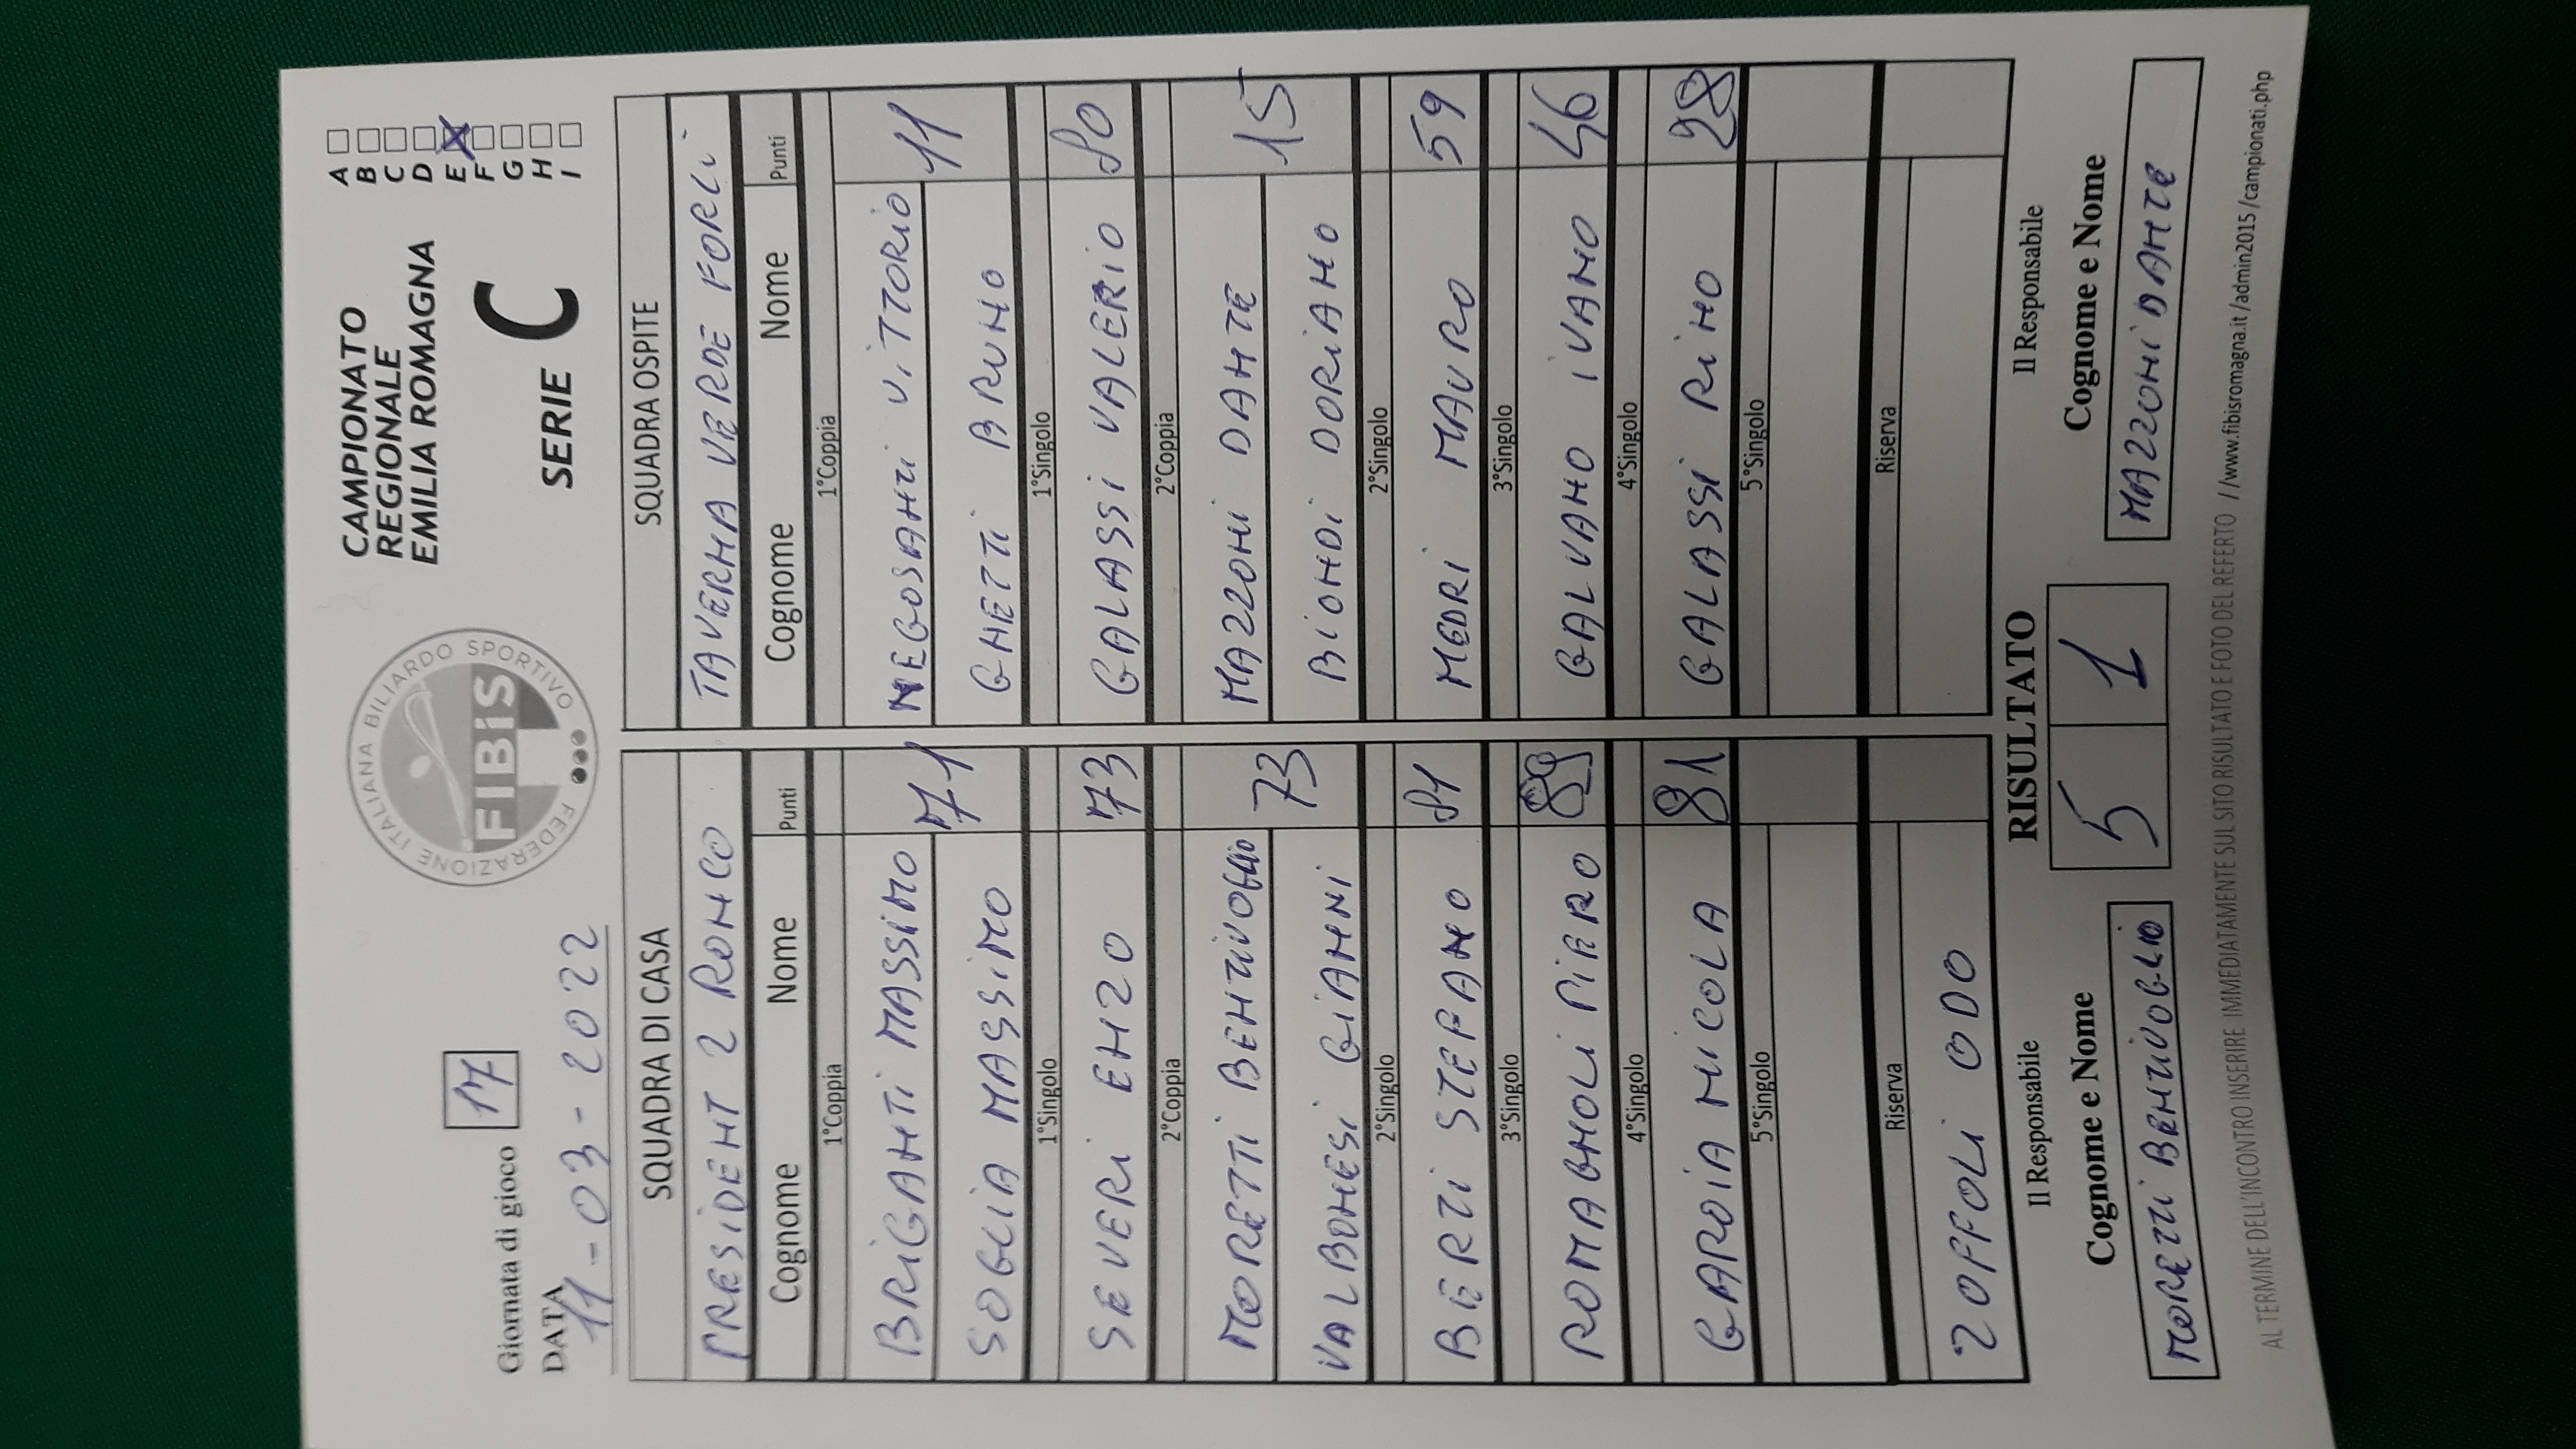 Giornata di gioco 17
DATA 11-03-2022
FEDERAZIONE ITALIANA BILIARDO SPORTIVO
FIBiS
CAMPIONATO
REGIONALE
EMILIA ROMAGNA
SERIE C
A
B
C
D
E X
F
G
H
I
SQUADRA DI CASA
PRESIDENT 2 RONCO
Cognome Nome Punti
1°Coppia
BRIGANTI MASSIMO
71
SOGLIA MASSIMO
1°Singolo
SEVERI ENZO 73
2°Coppia
MORETTI BENTIVOGLIO
73
VALBONESI GIANNI
2°Singolo
BERTI STEFANO 81
3°Singolo
ROMAGNOLI PIERO 89
4°Singolo
GARDIA NICOLA 81
5°Singolo
Riserva
ZOFFOLI ODO
SQUADRA OSPITE
TAVERNA VERDE FORLI
Cognome Nome Punti
1°Coppia
NEGOSANTI VITTORIO
11
GHETTI BRUNO
1°Singolo
GALASSI VALERIO 80
2°Coppia
MAZZONI DANTE
15
BIONDI DORIANO
2°Singolo
MEDRI MAURO 59
3°Singolo
GALVANO IVANO 46
4°Singolo
GALASSI RINO 28
5°Singolo
Riserva
Il Responsabile
Cognome e Nome
MORETTI BENTIVOGLIO
RISULTATO
5 1
Il Responsabile
Cognome e Nome
MAZZONI DANTE
AL TERMINE DELL'INCONTRO INSERIRE IMMEDIATAMENTE SUL SITO RISULTATO E FOTO DEL REFERTO //www.fibisromagna.it/admin2015/campionati.php